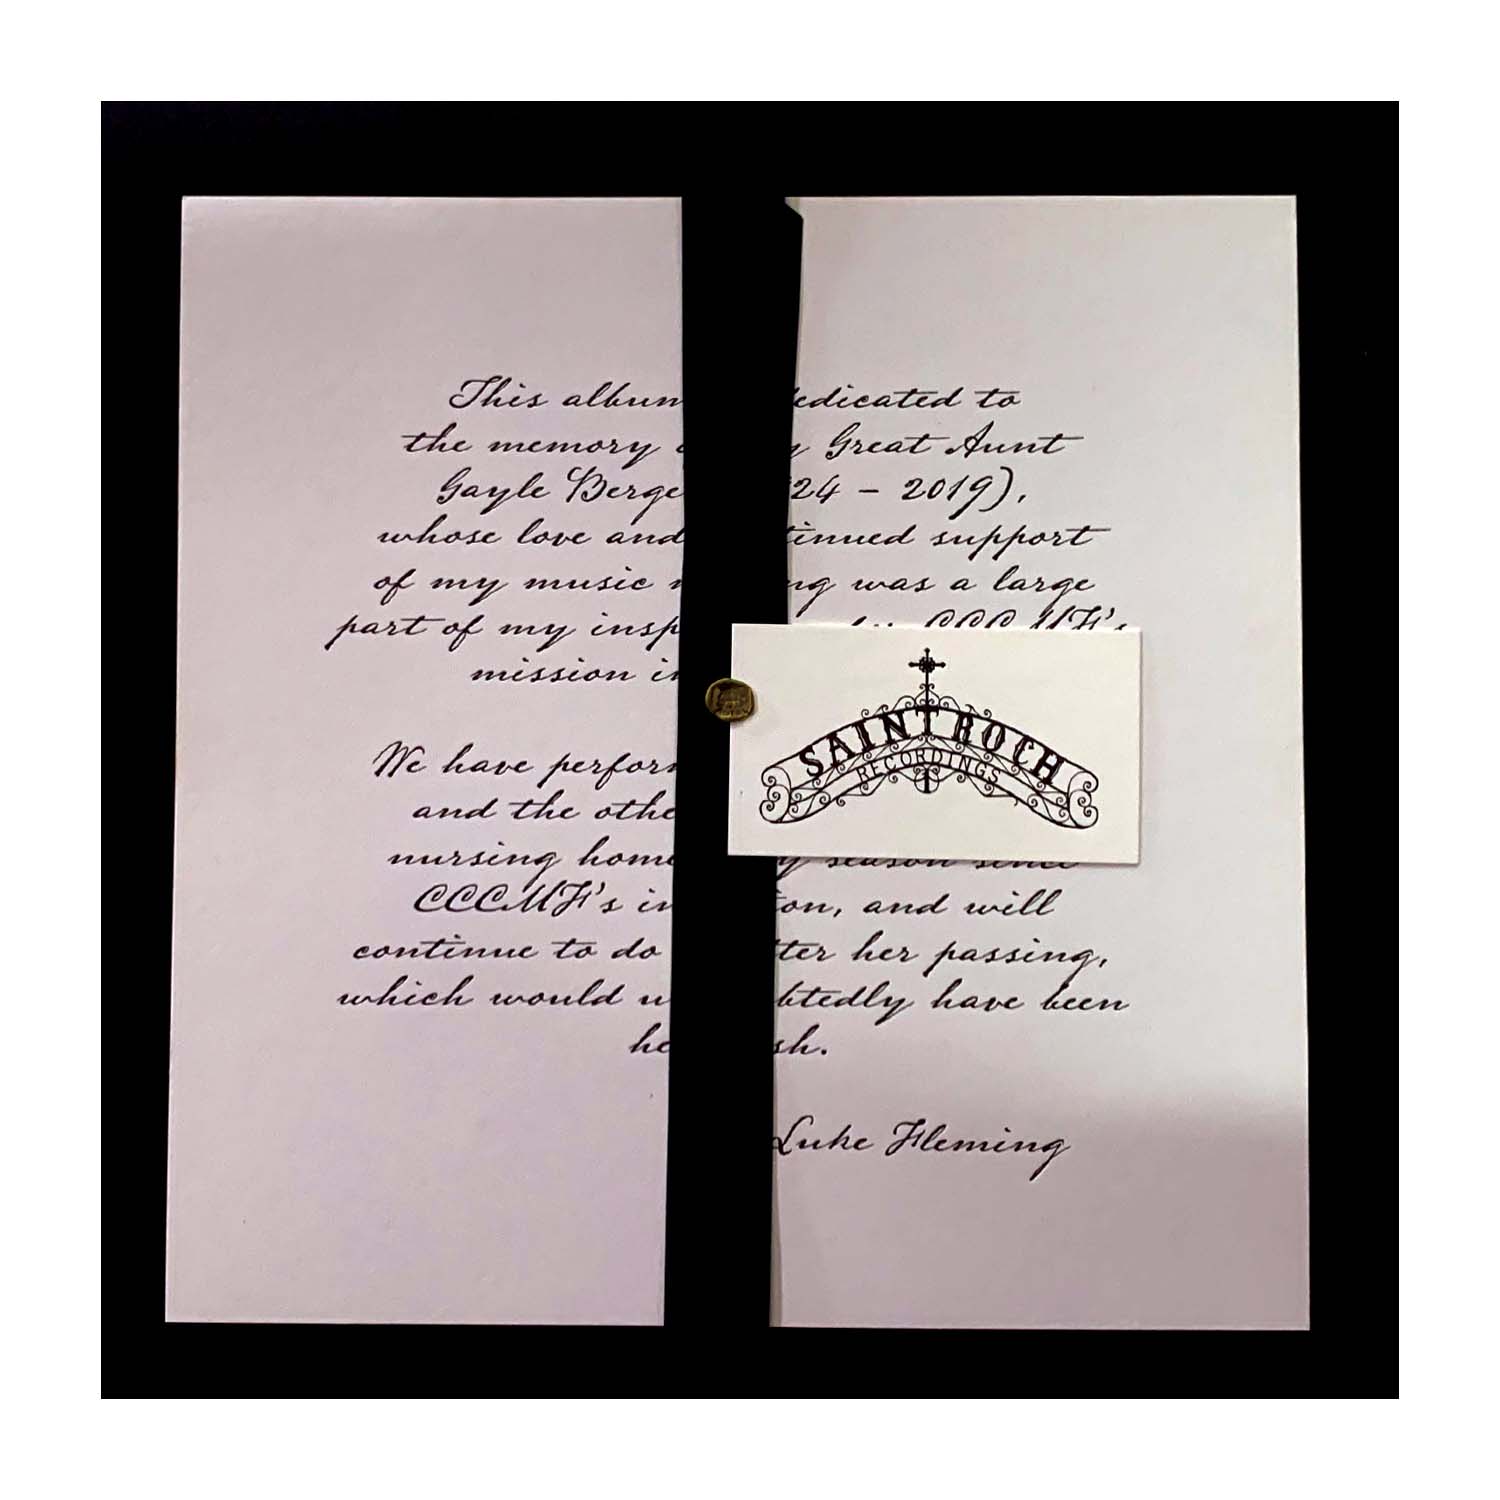 This album edicated to
the memory Great Aunt
Gayle Berge 24 – 2019),
whose love and tinued support
of my music ng was a large
part of my insp CCCMF's
mission in
SAINT ROCH
RECORDINGS
We have perform
and the othe
nursing home y season since
CCCMF's in ion, and will
continue to do ter her passing,
which would u btedly have been
he sh.
Luke Fleming